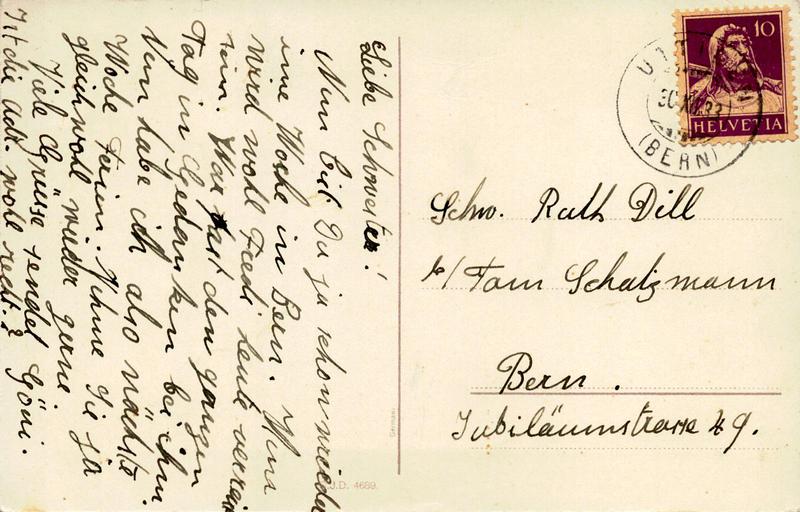 Liebe Schwester!
Nun bist Du ja schon wieder
eine Woche in Bern. Nun
wird wohl Fredi heute verrei
sein. War fast den ganzen
Tag in Gedanken bei ihm
Nun habe ich also nächste
Woche Ferien. Nehme Sie ja
gleichwohl wieder gerne.
Viele Grüsse sendet Göni.
Ist die Adr. wohl recht?
10
HELVETIA
30.XII.33
(BERN)
Schw. Ruth Dill
b/ Fam Schatzmann
Bern.
Jubiläumstrasse 49.
Germany
J.D. 4689.